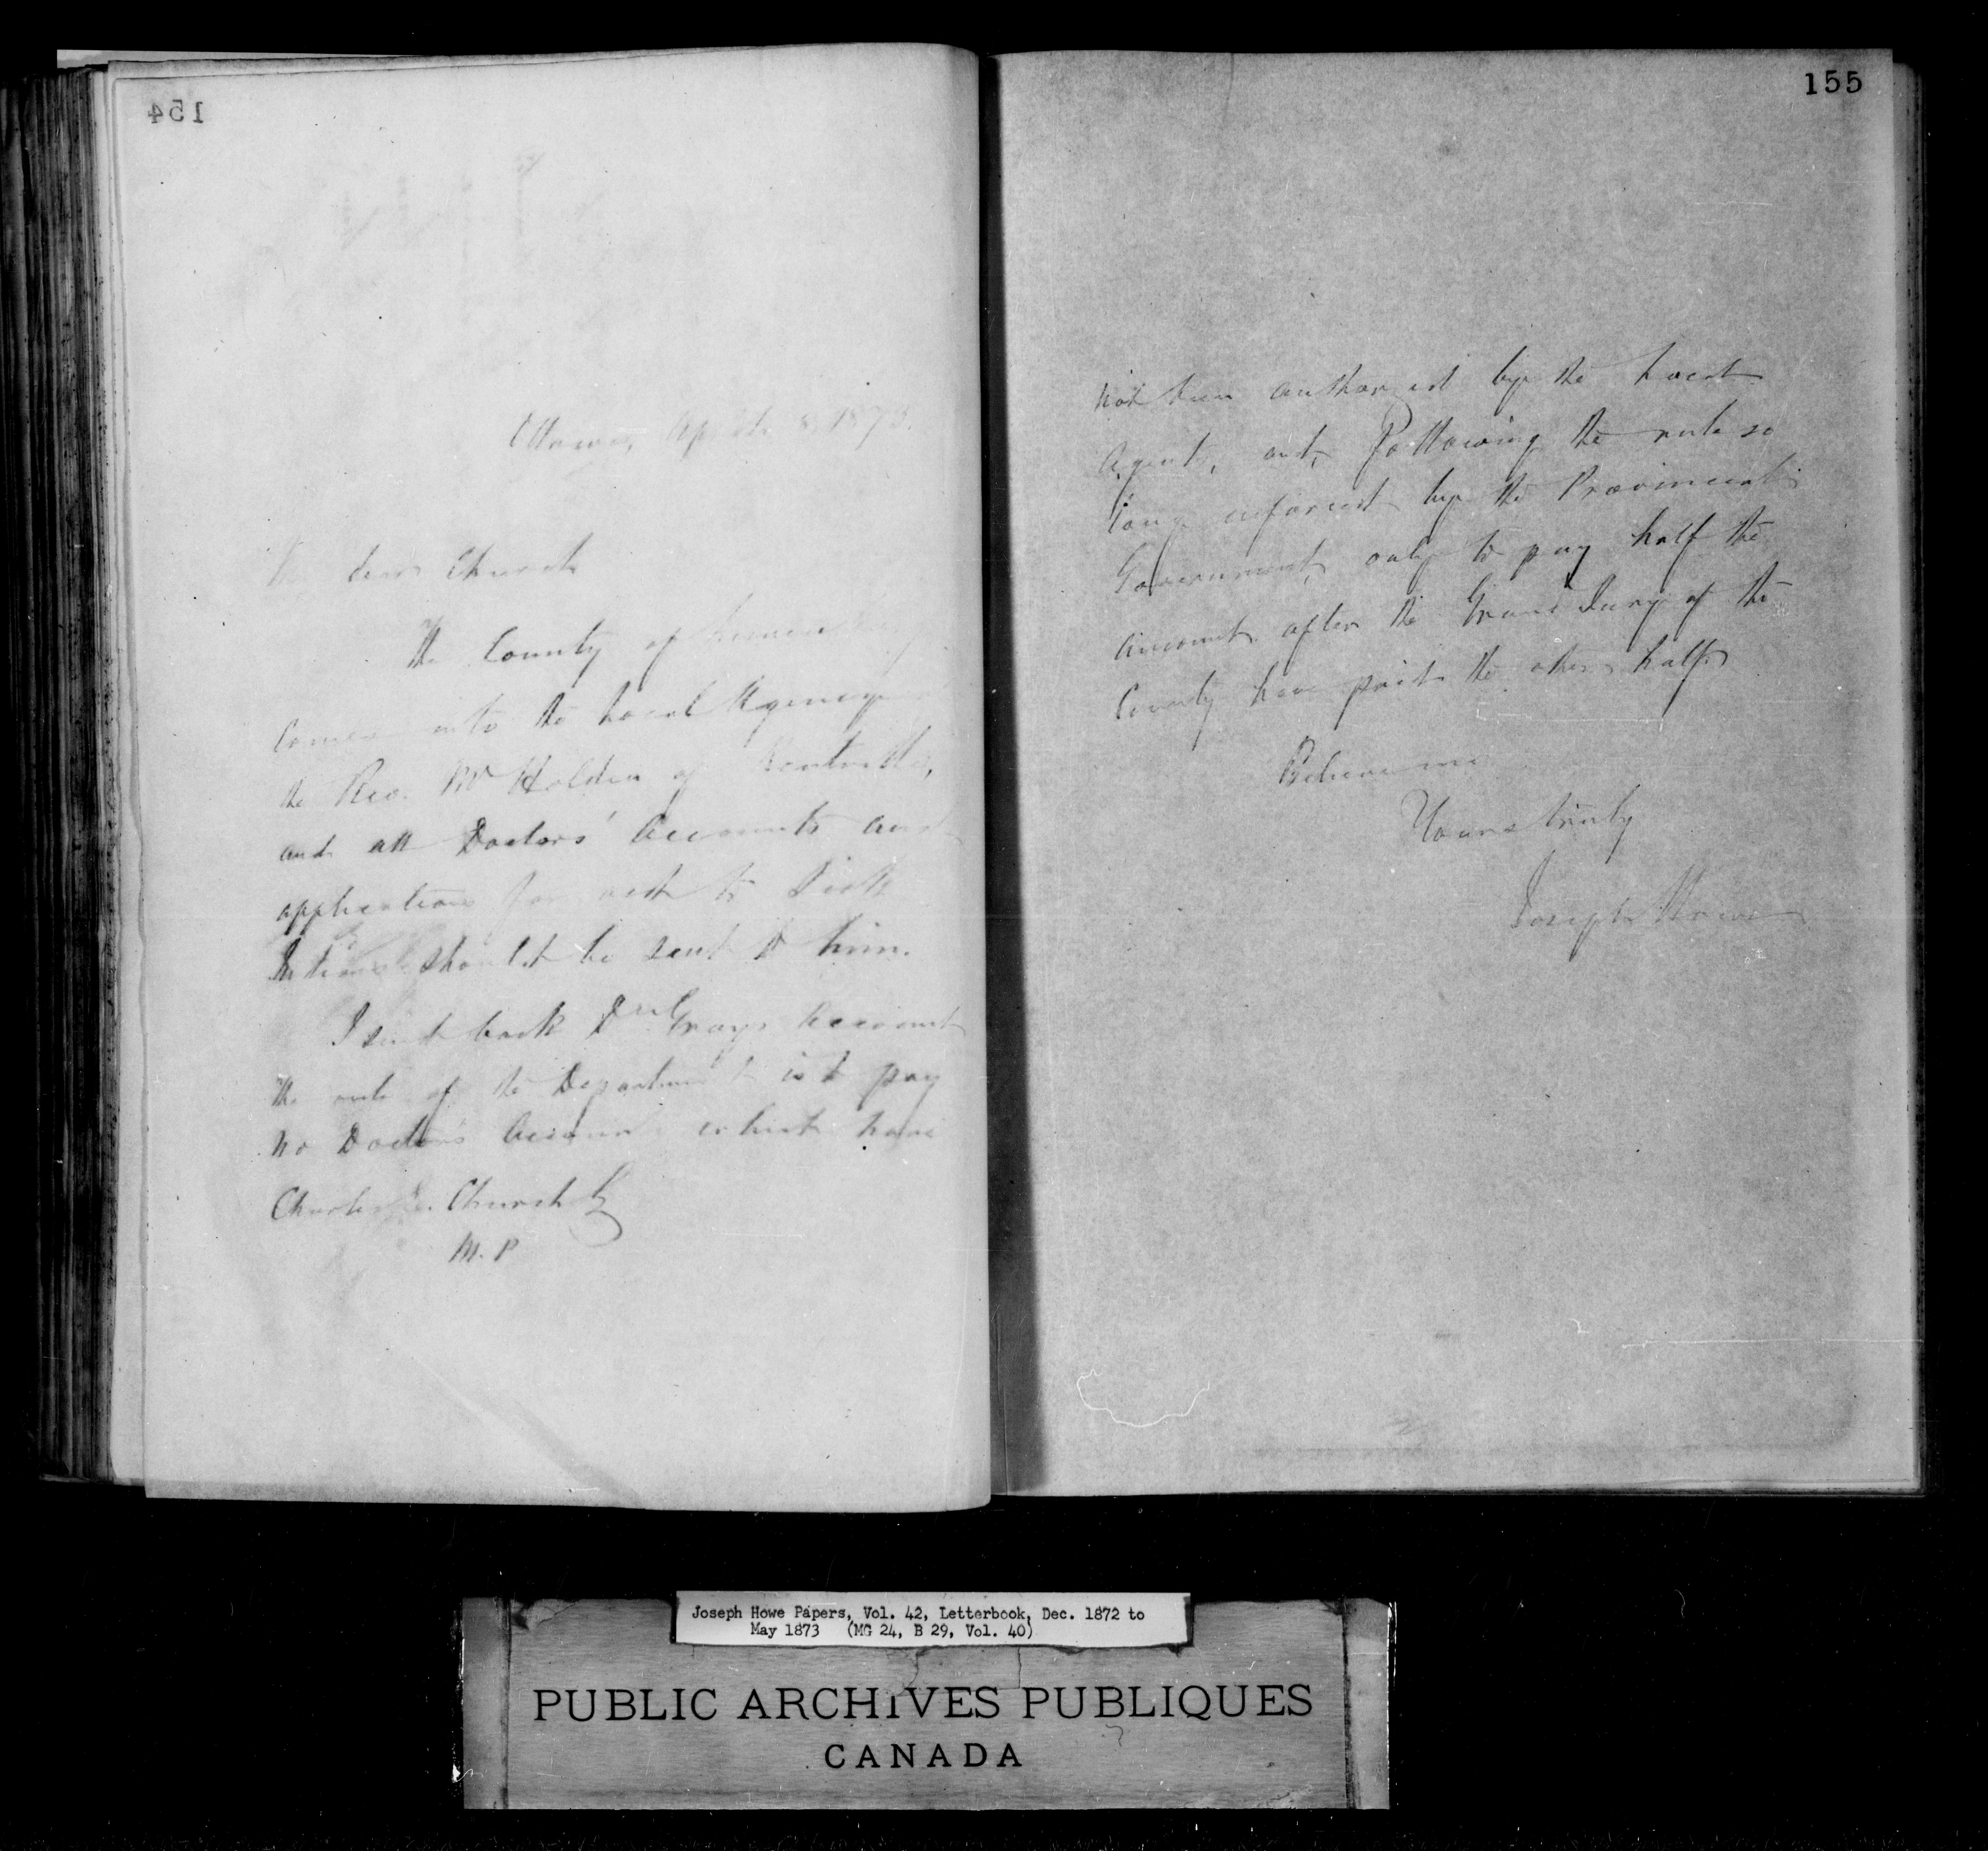 154
Ottawa, April 8. 1873.
dear Church
The County of Lunenburg
comes into the Local Agency of
the Rev. Mr Holden of Kentville,
and all Doctors' accounts and
applications for aid to Sick
Indians should be sent to him.
I send back Dr Grays account
The rule of the Department is to pay
no Doctor's accounts which have
Charles E. Church Esq
M. P
155
not been authorized by the Local
Agent, and, following the rule so
long enforced by the Provincial
Government, only to pay half the
amount after the Grand Jury of the
County have paid the other half.
Believe me
Yours truly
Joseph Howe
Joseph Howe Papers, Vol. 42, Letterbook, Dec. 1872 to
May 1873 (MG 24, B 29, Vol. 40)
PUBLIC ARCHIVES PUBLIQUES
CANADA